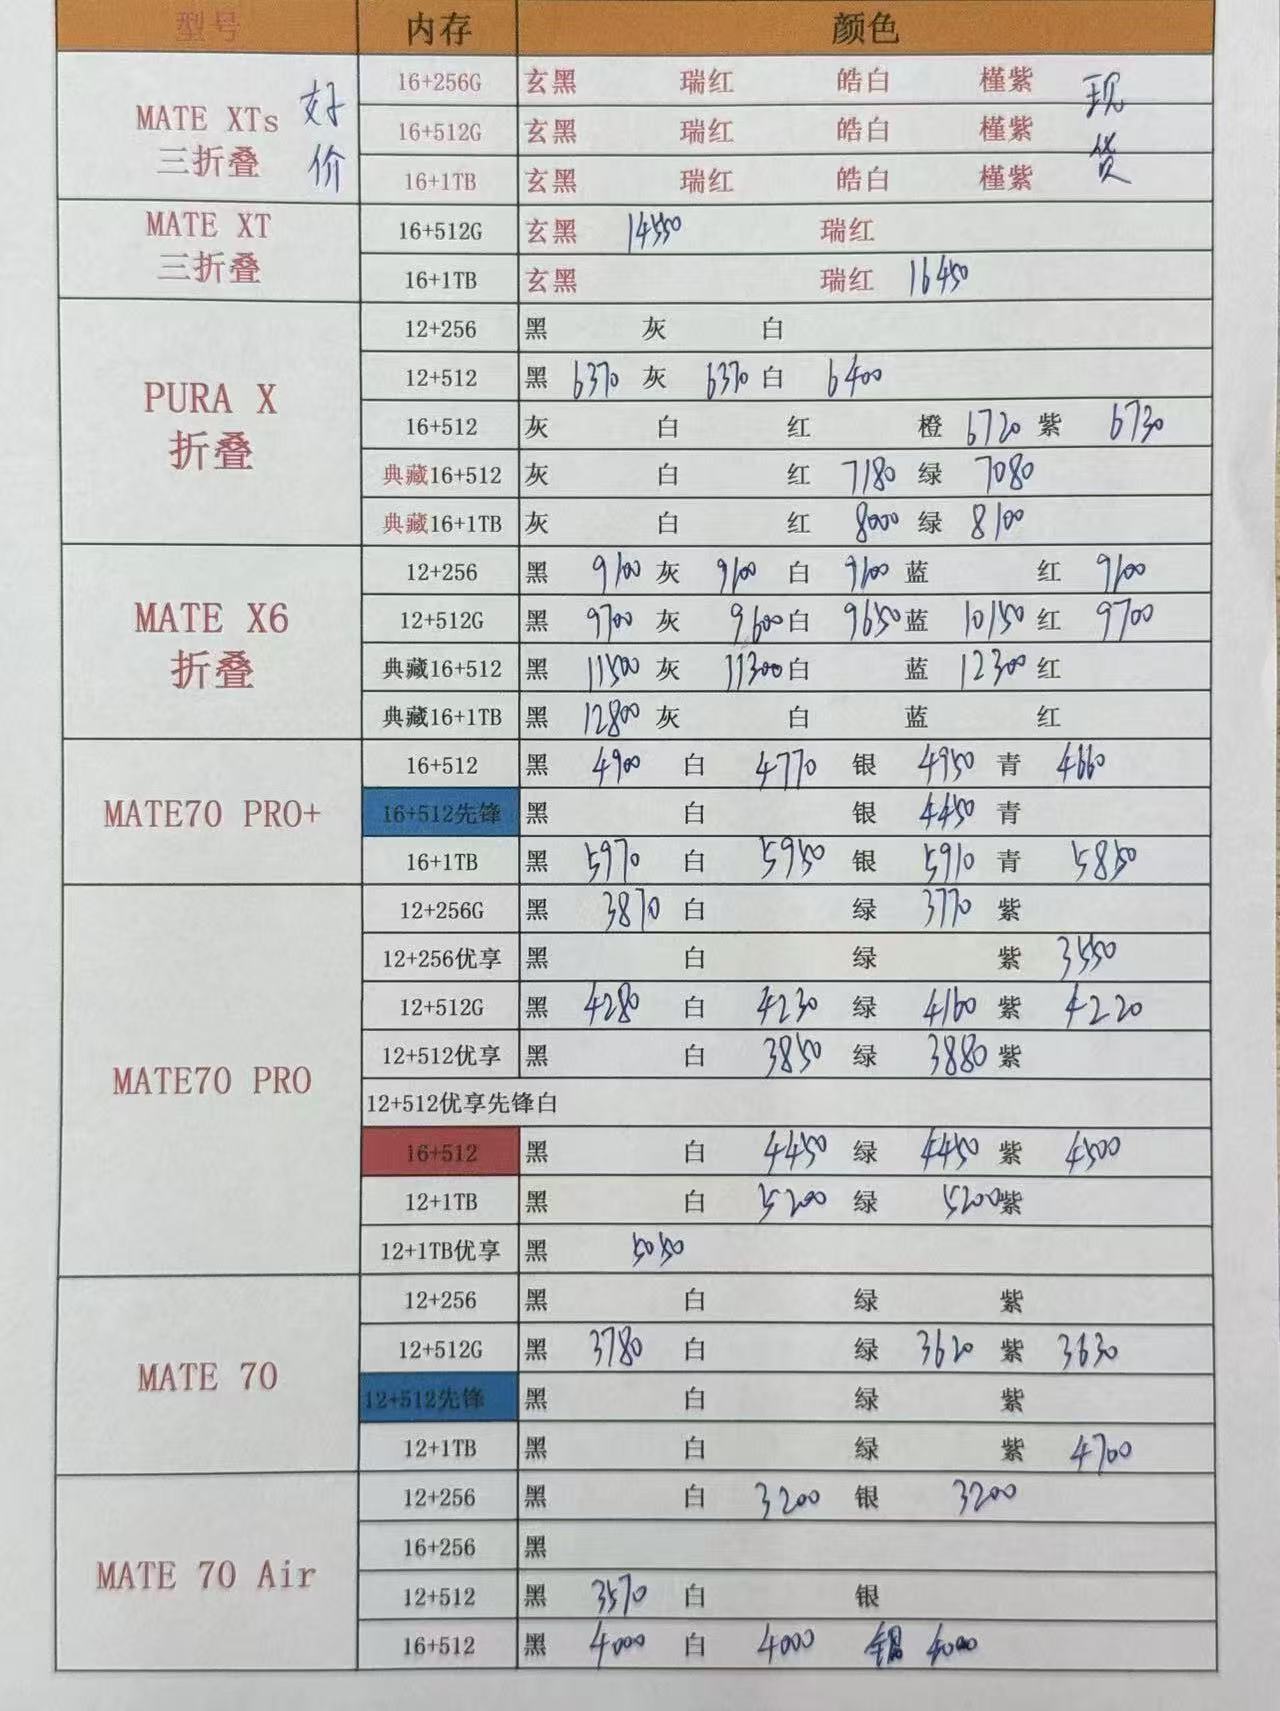 型号 内存 颜色
MATE XTs 三折叠 好价 现货
16+256G 玄黑 瑞红 皓白 槿紫
16+512G 玄黑 瑞红 皓白 槿紫
16+1TB 玄黑 瑞红 皓白 槿紫
MATE XT 三折叠
16+512G 玄黑 14550 瑞红
16+1TB 玄黑 瑞红 16450
PURA X 折叠
12+256 黑 灰 白
12+512 黑 6370 灰 6370 白 6400
16+512 灰 白 红 橙 6720 紫 6730
典藏16+512 灰 白 红 7180 绿 7080
典藏16+1TB 灰 白 红 8000 绿 8100
MATE X6 折叠
12+256 黑 9100 灰 9100 白 9100 蓝 红 9100
12+512G 黑 9700 灰 9600 白 9650 蓝 10150 红 9700
典藏16+512 黑 11500 灰 11300 白 蓝 12300 红
典藏16+1TB 黑 12800 灰 白 蓝 红
MATE70 PRO+
16+512 黑 4900 白 4770 银 4950 青 4660
16+512先锋 黑 白 银 4450 青
16+1TB 黑 5970 白 5950 银 5910 青 5850
MATE70 PRO
12+256G 黑 3870 白 绿 3770 紫
12+256优享 黑 白 绿 紫 3550
12+512G 黑 4280 白 4230 绿 4160 紫 4220
12+512优享 黑 白 3850 绿 3880 紫
12+512优享先锋白
16+512 黑 白 4450 绿 4450 紫 4500
12+1TB 黑 白 5200 绿 5200 紫
12+1TB优享 黑 5050
MATE 70
12+256 黑 白 绿 紫
12+512G 黑 3780 白 绿 3620 紫 3630
12+512先锋 黑 白 绿 紫
12+1TB 黑 白 绿 紫 4700
MATE 70 Air
12+256 黑 白 3200 银 3200
16+256 黑
12+512 黑 3570 白 银
16+512 黑 4000 白 4000 银 4000